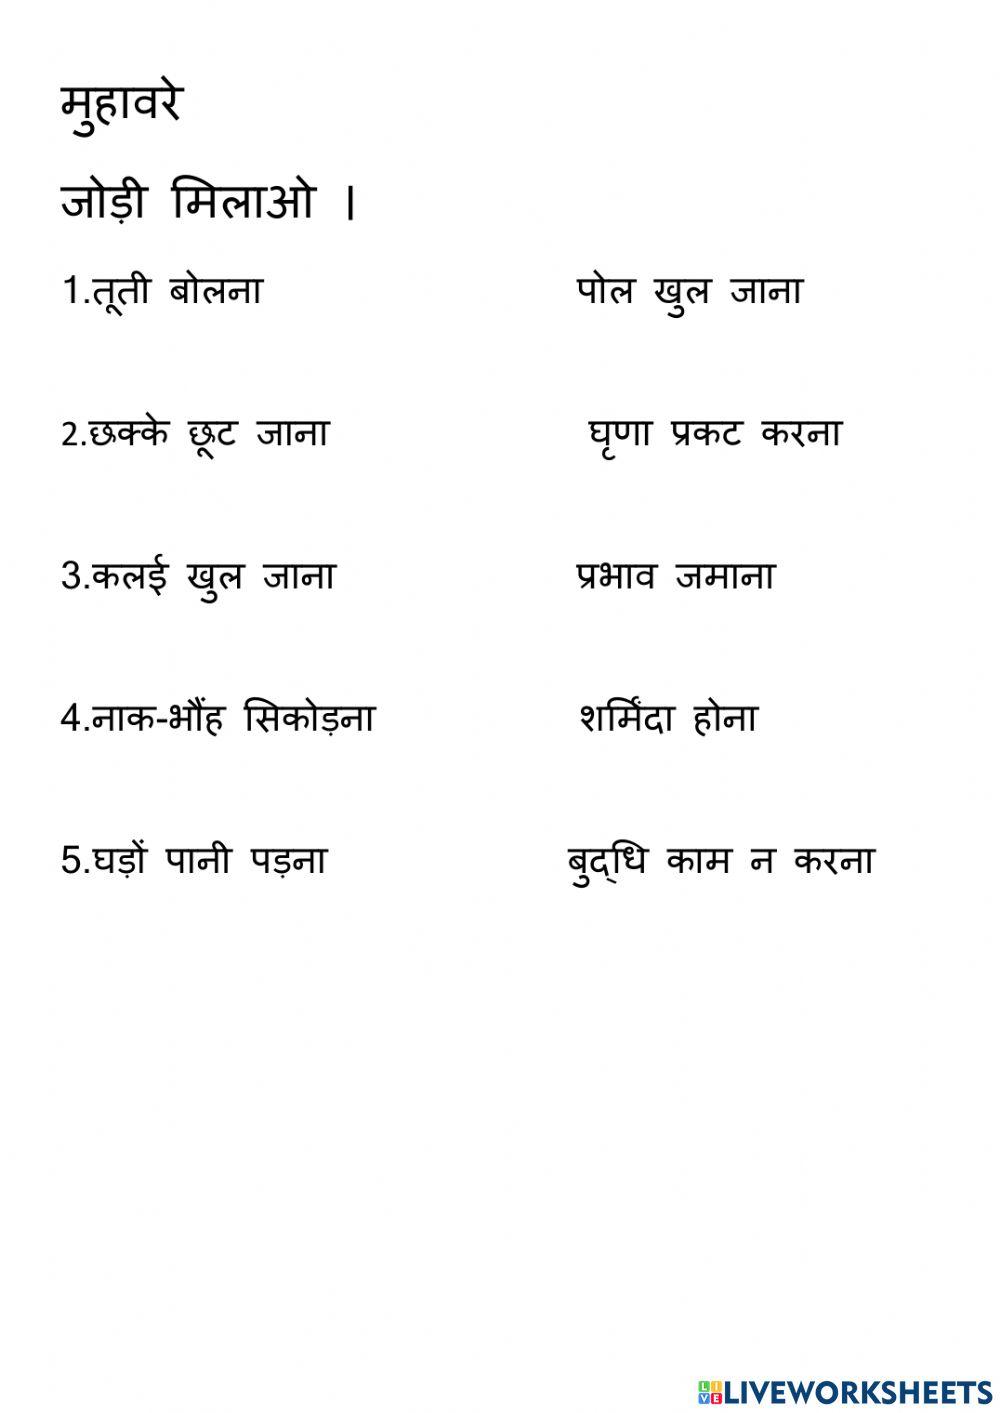 मुहावरे
जोड़ी मिलाओ ।
1.तूती बोलना पोल खुल जाना
2.छक्के छूट जाना घृणा प्रकट करना
3.कलई खुल जाना प्रभाव जमाना
4.नाक-भौंह सिकोड़ना शर्मिंदा होना
5.घड़ों पानी पड़ना बुद्‌धि काम न करना
LIVEWORKSHEETS